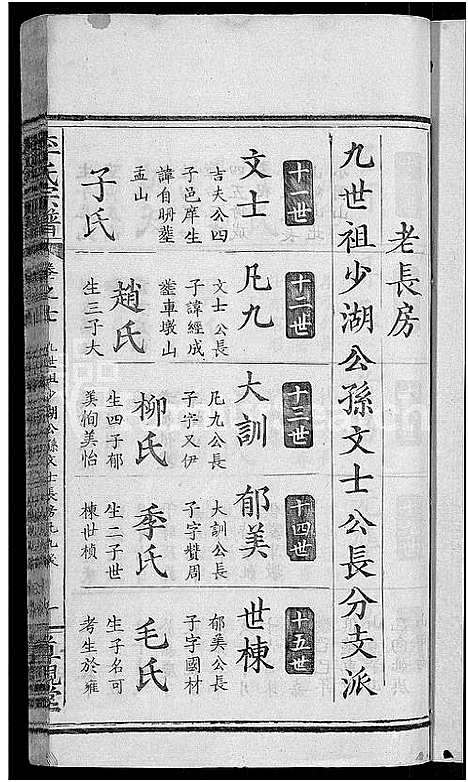 老長房
九世祖少湖公孫文士公長分支派
十一世
文士
吉夫公四
子邑庠生
諱自明葬
孟山
子氏
十二世
凡九
文士公長
子諱經成
葬車墩山
趙氏
生三子大
十三世
大訓
凡九公長
子字又伊
柳氏
生四子郁
美恂美怡
十四世
郁美
大訓公長
子字贊周
季氏
生二子世
棟世楨
十五世
世棟
郁美公長
子字國材
毛氏
生子名可
考生於雍
李氏宗譜
卷之七
九世祖少湖公孫文士長房
一